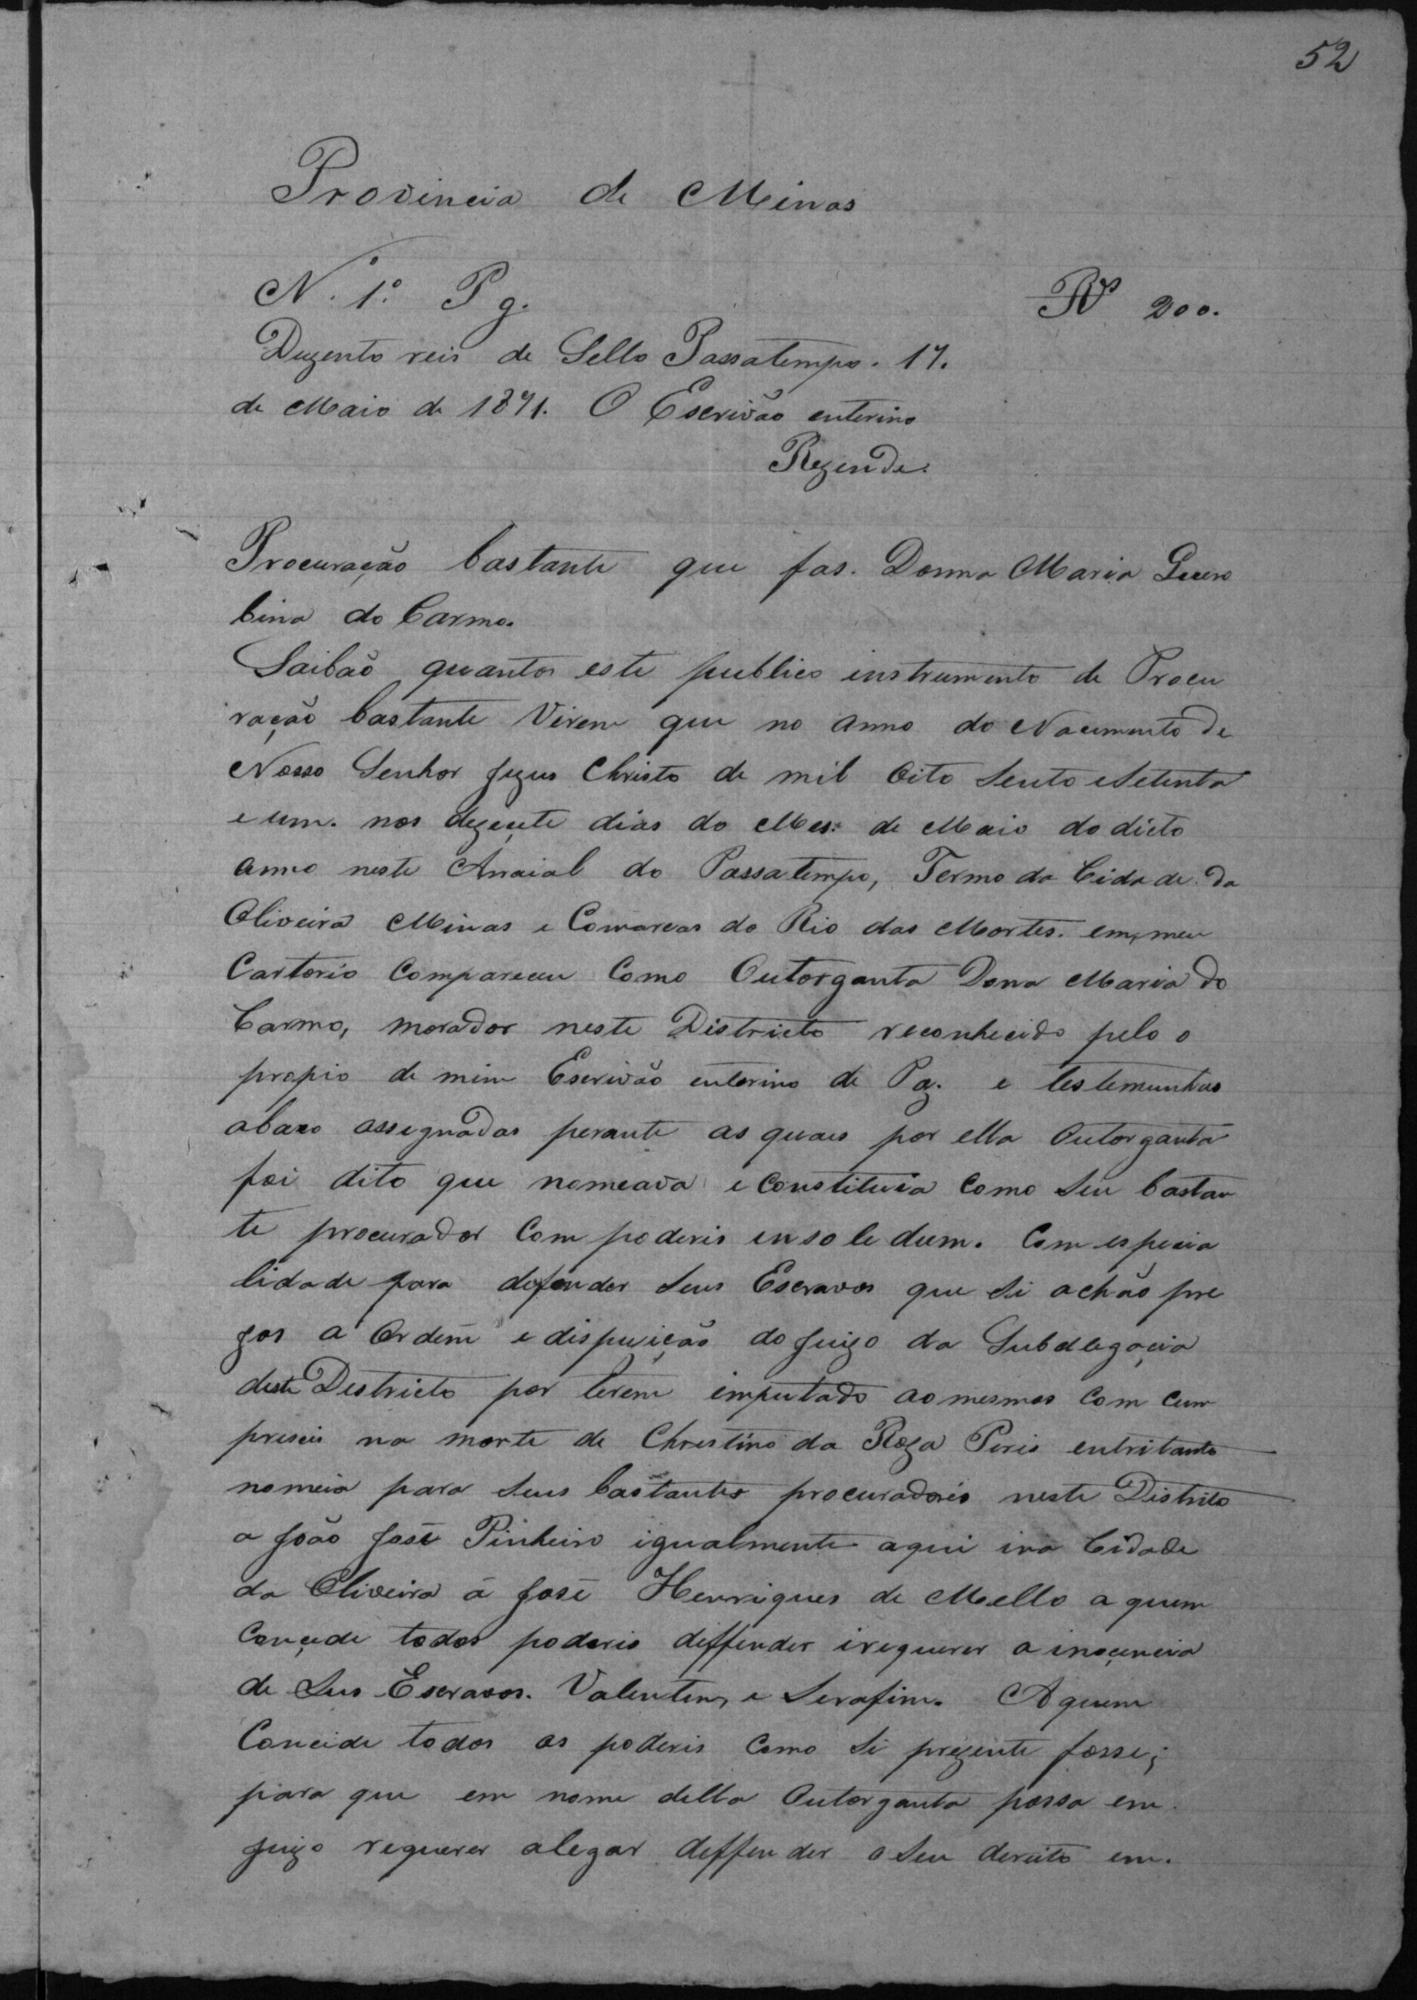 52
Provincia de Minas
N. 1º. Pg. Rs 200.
Duzento reis de Sello Passatempo. 17.
de Maio de 1871. O Escrivão enterino
Rezende.
Procuração bastante que fas. Donna Maria
bina do Carmo.
Saibão quantos este publico instrumento de Procu
ração bastante Virem que no anno do Nacimento de
Nosso Senhor Jezus Christo de mil Oito Sento e Setenta
e um. nos dezecete dias do Mes: de Maio do dicto
anno neste Araial do Passatempo, Termo da Cidade da
Oliveira Minas e Comarcas do Rio das Mortes. em meu
Cartorio Compareceu Como Outorganta Dona Maria do
Carmo, morador neste Districto reconhecido pelo o
propio de mim Escrivão enterino de Paz. e testemunhas
abaxo assegnadas perante as quais por ella Outorganta
foi dito que nomeava e Constituia Como Seu bastan
te procurador Com poderis ensoledum. Com especia
lidade para defender Seus Escravos que Si achão pre
zos a Ordem e dispuição do Juizo da Subdlegacia
deste Destricto por terem imputado aomesmos Com Cum
preseis na morte de Chrestino da Roza Peris entritanto
nomeia para Seus bastantes procuradoris neste Distrito
a João José Pinheiro igualmente aqui ina Cidade
da Oliveira á José Henriques de Mello a quem
Conçede todos poderis deffender irequerer a inoçencia
de Sus Escravos. Valentim, e Serafim. Aquem
Conside todos os poderis Como Si prezente fosse;
para que em nome della Outorganta possa em.
Juizo requerer alegar deffender o Seu dereito em.